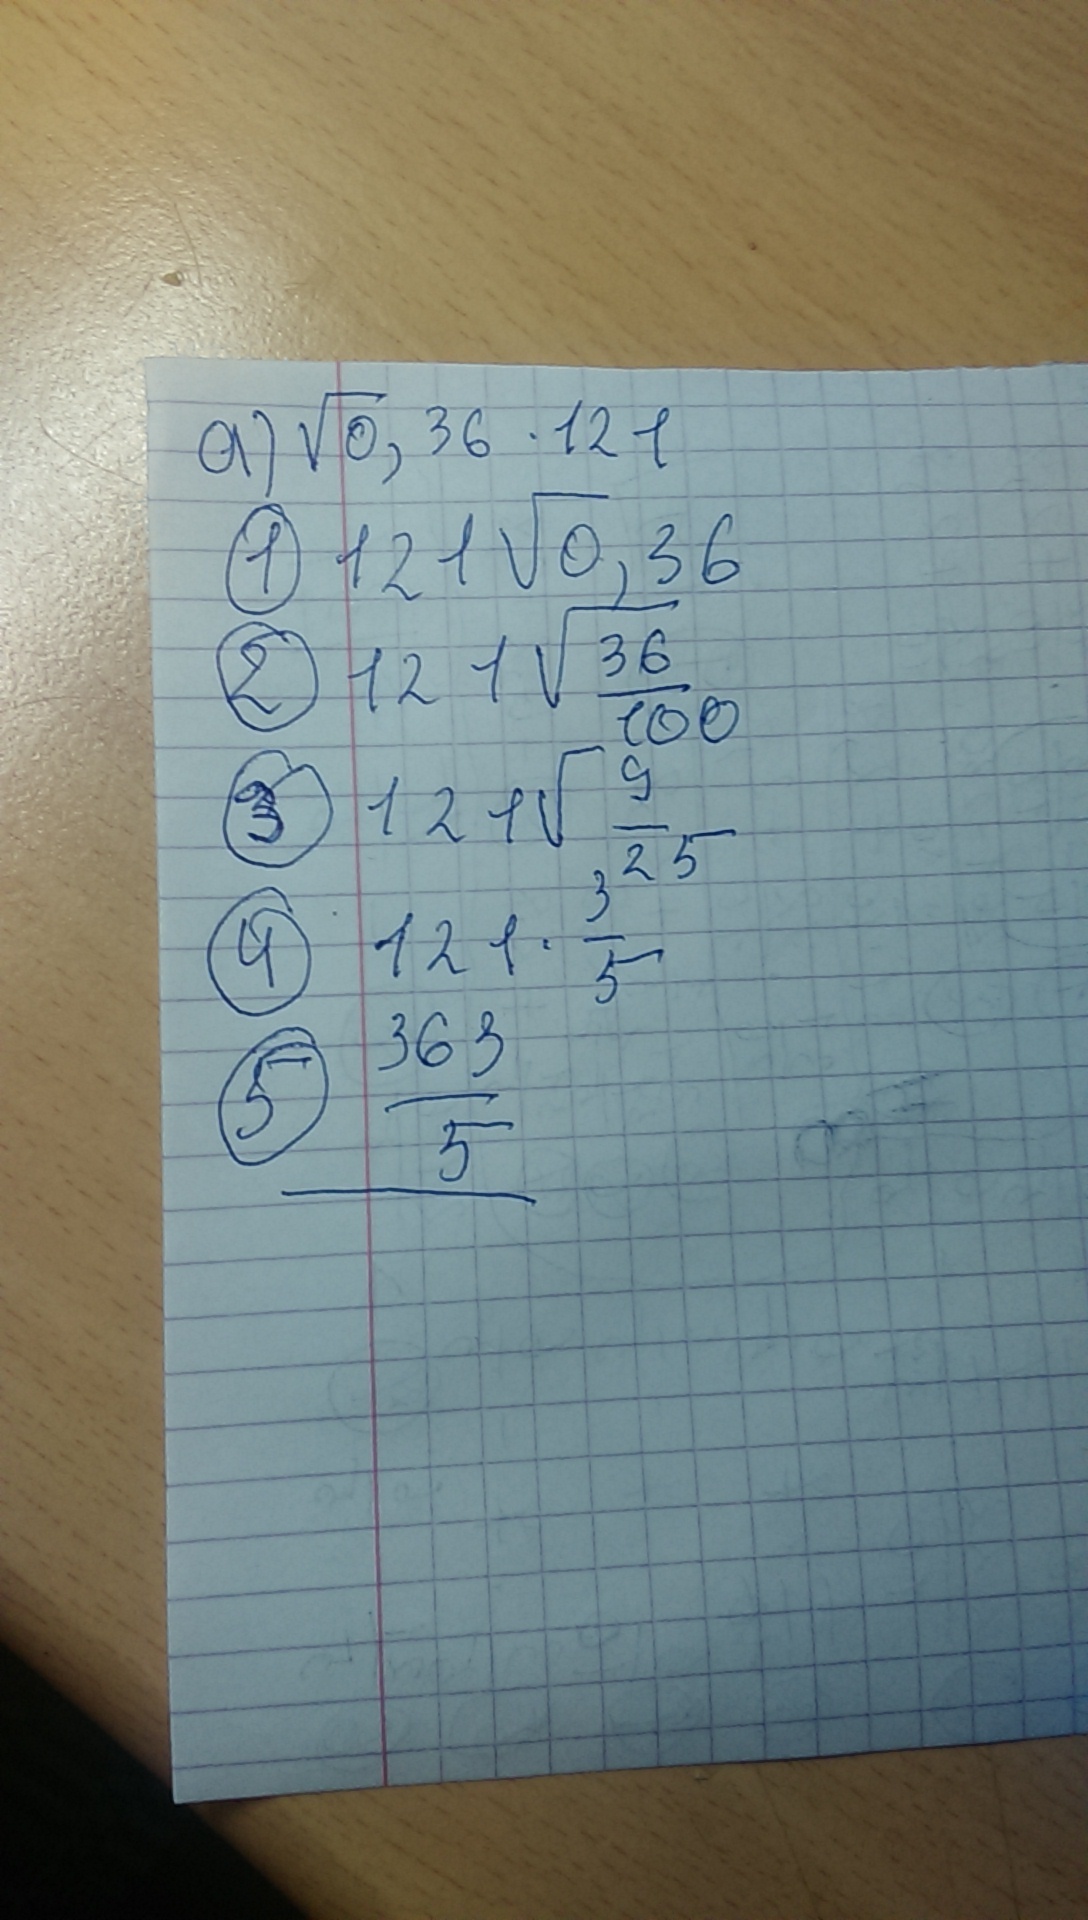 а) √0,36 · 121
① 121√0,36
② 121√36/100
③ 121√9/25
④ 121 · 3/5
⑤ 363/5